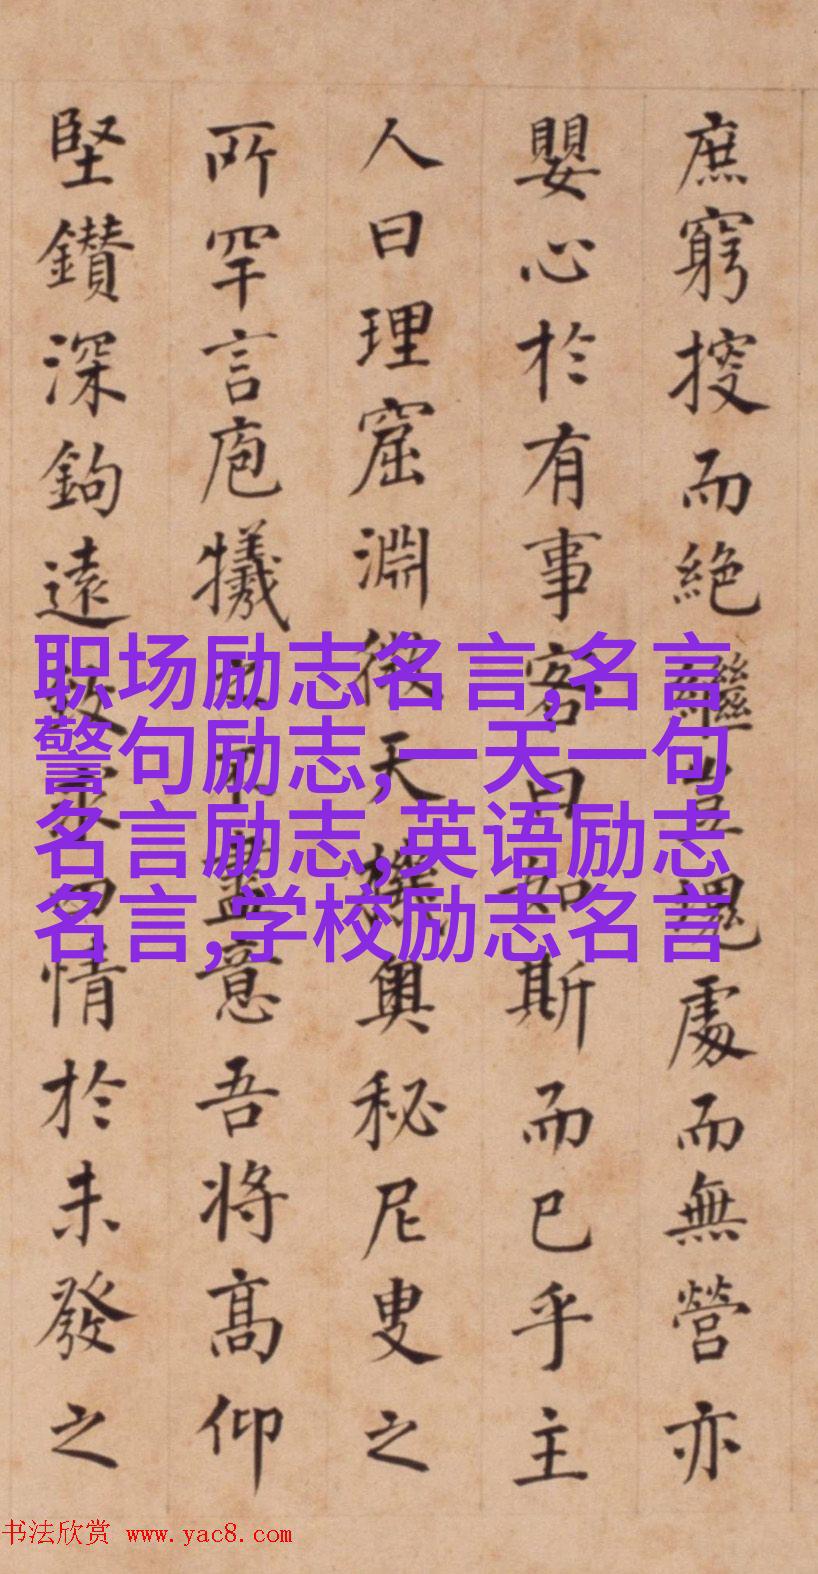 庶窮搜而絶繼豈塊處而無營亦
嬰心於有事客曰如斯而已乎主
人曰理窟淵微天機奧秘尼叟之
所罕言庖犧不盡意吾將高仰
堅鑽深鉤遠情於未發之
职场励志名言,名言
警句励志,一天一句
名言励志,英语励志
名言,学校励志名言
书法欣赏 www.yac8.com